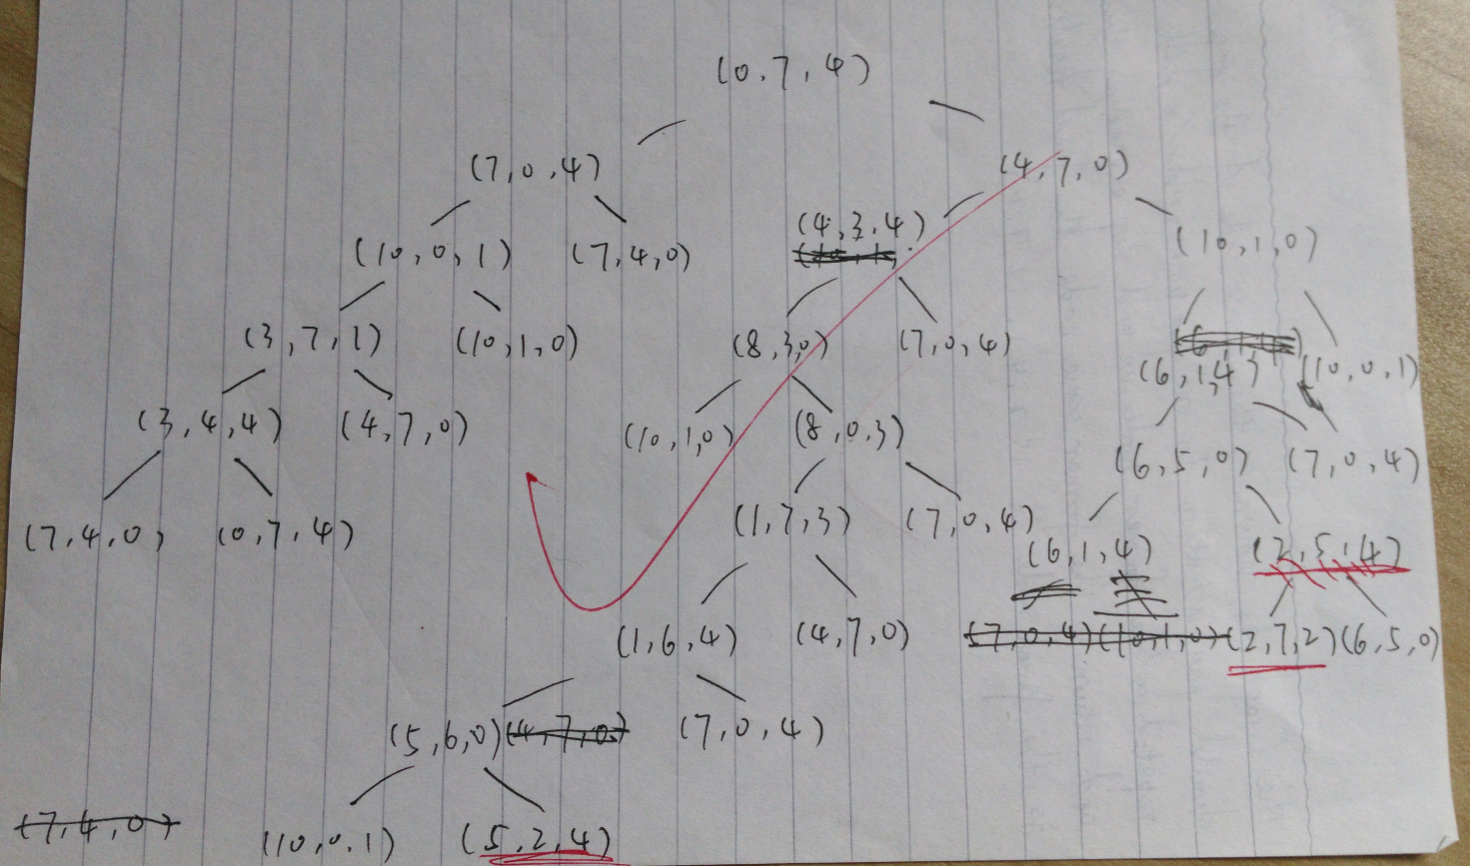 (0,7,4)
(7,0,4) (4,7,0)
(10,0,1) (7,4,0) (4,3,4) (10,1,0)
(3,7,1) (10,1,0) (8,3,0) (7,0,4) (6,1,4) (10,0,1)
(3,4,4) (4,7,0) (10,1,0) (8,0,3) (6,5,0) (7,0,4)
(7,4,0) (0,7,4) (1,7,3) (7,0,4) (6,1,4) (2,5,4)
(1,6,4) (4,7,0) (7,0,4) (10,1,0) (2,7,2) (6,5,0)
(5,6,0) (4,7,0) (7,0,4)
(7,4,0) (10,0,1) (5,2,4)